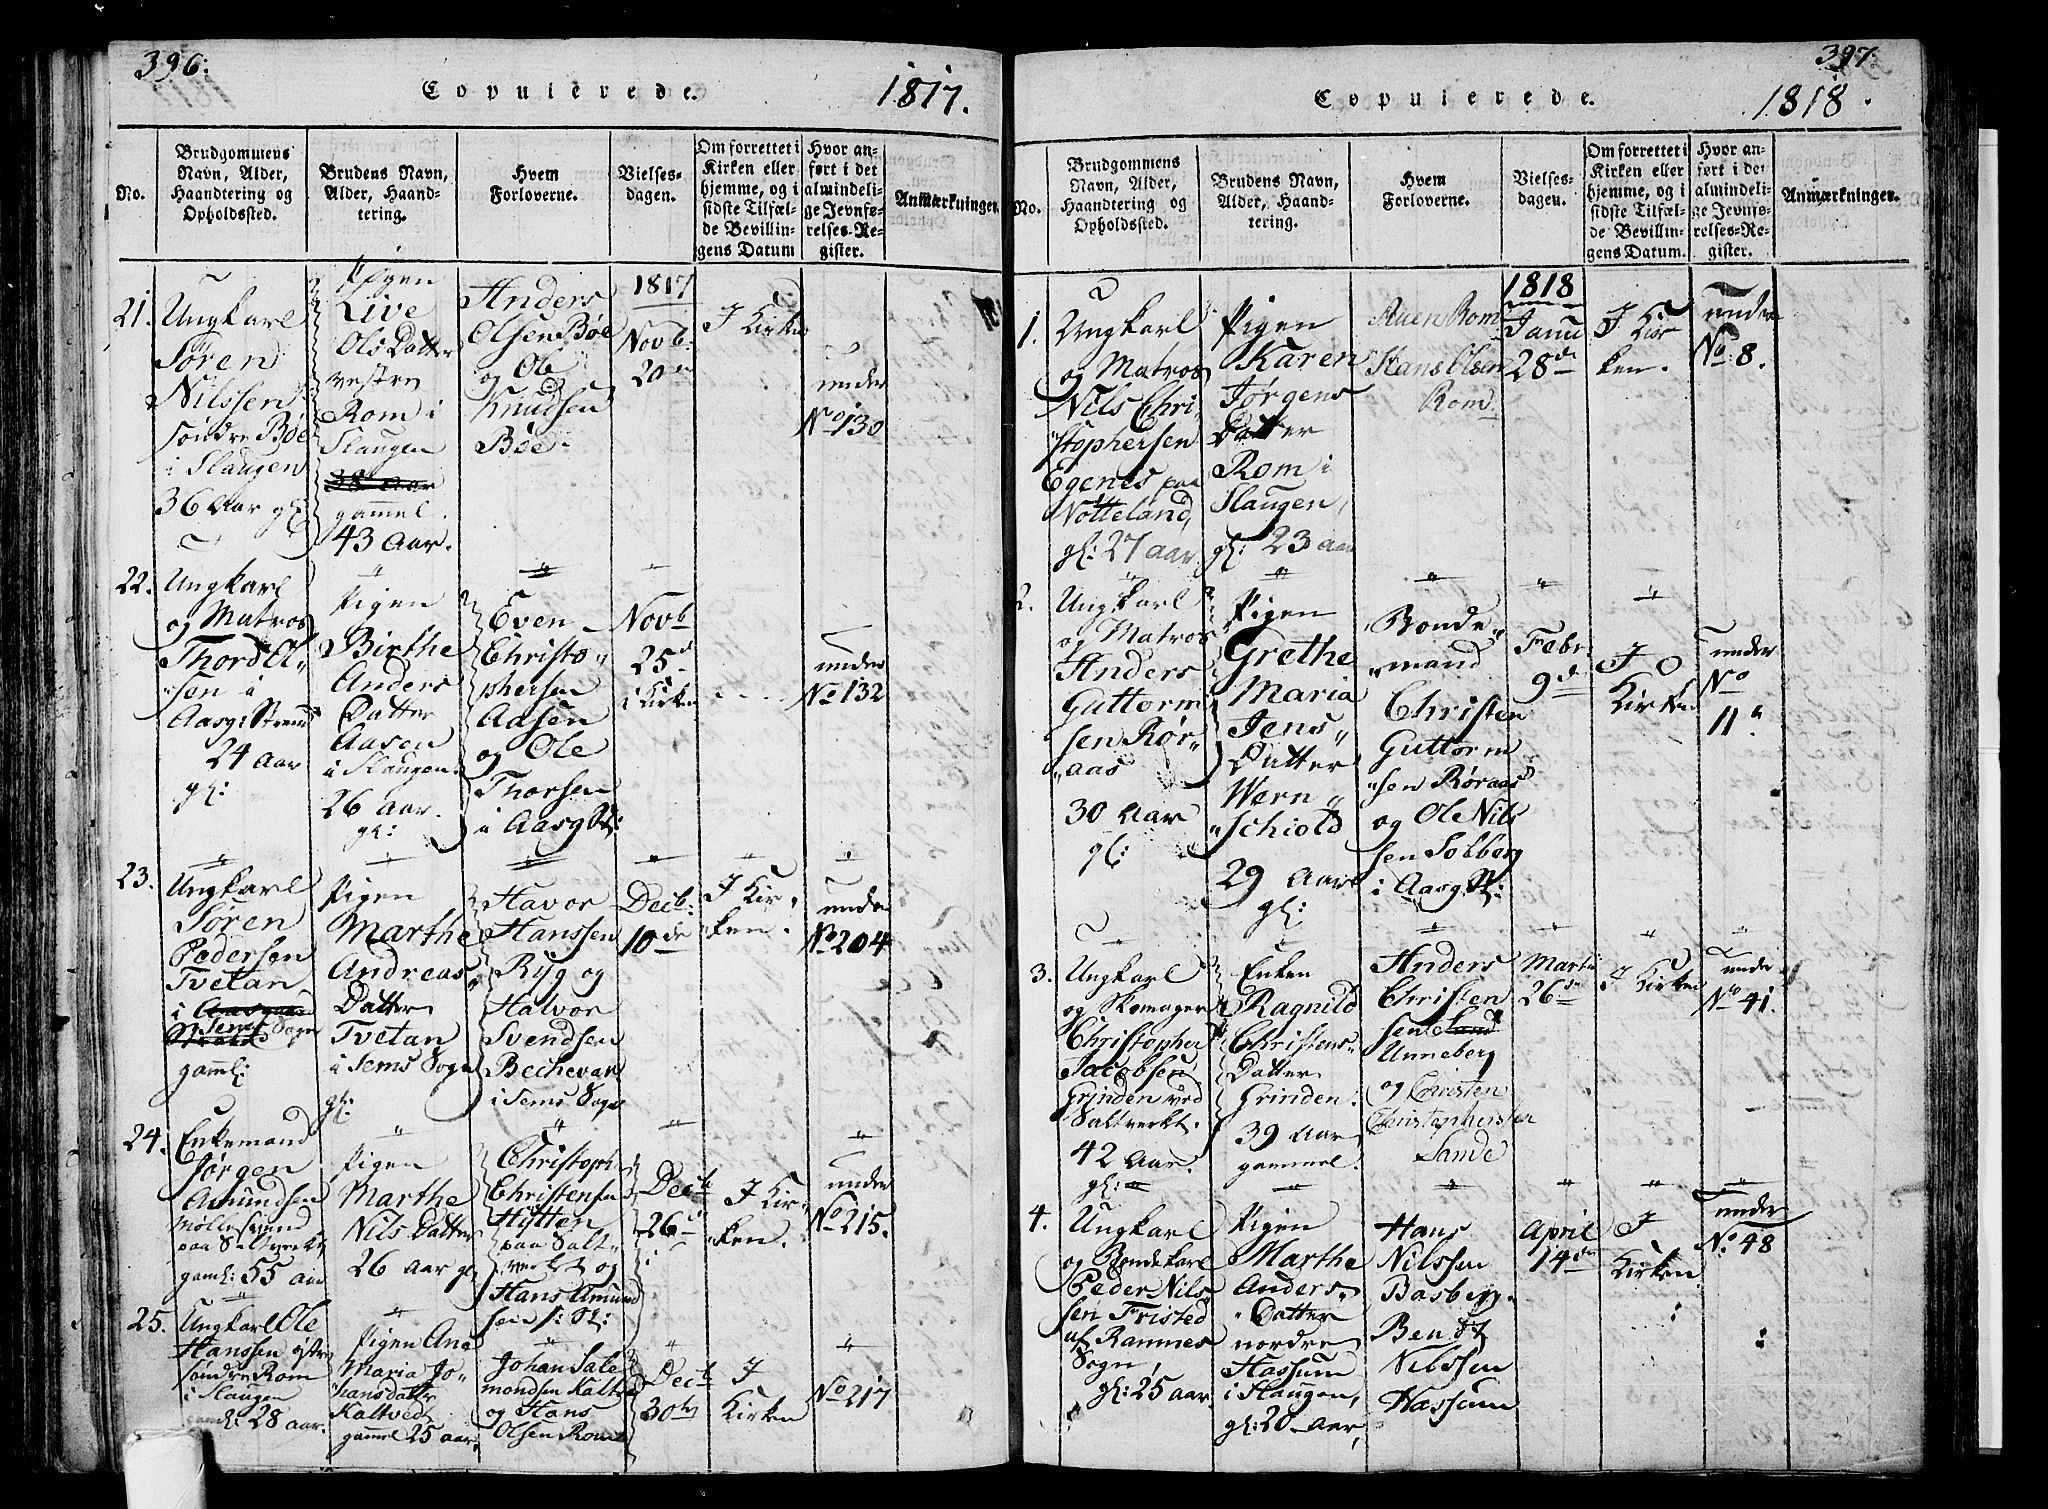 396:
Copulerede.
1817.
No.
Brudgommens
Navn, Alder,
Haandtering og
Opholdssted.
Brudens Navn,
Alder, Haand-
tering.
Hvem
Forloverne.
Vielses-
dagen.
Om forrettet i
Kirken eller
hjemme, og i
sidste Tilfæl-
de Bevillin-
gens Datum
Hvor an-
ført i det
almindeli-
ge Jevnfø-
relses-Re-
gister.
Anmærkninger.
21.
Ungkarl
Søren
Nilssen
søndre Bøe
i Slaugen
36 Aar gl:
Pigen
Live
Ols Datter
vestre
Rom i
Slaugen
38 Aar
gammel.
43 Aar.
Anders
Olsen Bøe
og Ole
Knudsen
Bøe.
1817
Novb:
20de
I Kirken
under
No 130
22.
Ungkarl
og Matros
Thord Ol-
sen i
Aasg: Strand
24 Aar
gl:
Pigen
Birthe
Anders
Datter
Aasen
i Slaugen.
26 Aar.
gl:
Even
Christo-
phersen
Aasen
og Ole
Thorsen
i Aasg St:
Novb
25de
i Kirken
under
No 132
23.
Ungkarl
Søren
Pedersen
Tvetan
i
Sems Sogn
gaml:
Pigen
Marthe
Andreas
Datter
Tvetan
i Sems Sogn
gl:
Havor
Hanssen
Ryg og
Halvor
Svendsen
Bechevar
i Sems Sogn
Decb:
10de
I Kir-
ken.
under
No 204
24.
Enkemand
Jørgen
Amundsen
Møllesvend
paa Saltverket
gaml: 55 aar
Pigen
Marthe
Nils Datter
26 Aar gl
Christoph
Christensen
Hytten
paa Salt-
verket og
Hans Amund
sen
Decb
26de
I Kir-
ken.
under
No 215.
25.
Ungkarl Ole
Hanssen østre
søndre Rom
i Slaugen
gl: 28 aar.
Pigen Ana
Maria Jo-
hansdatter
Kaltved
gammel 25 aar,
Johan Sale
mondsen Kaltved
og Hans
Olsen Rom
Decb
30te
I
Kirken
No 217
397.
Copulerede.
1818.
No.
Brudgommens
Navn, Alder,
Haandtering og
Opholdssted.
Brudens Navn,
Alder, Haand-
tering.
Hvem
Forloverne.
Vielses-
dagen.
Om forrettet i
Kirken eller
hjemme, og i
sidste Tilfæl-
de Bevillin-
gens Datum.
Hvor an-
ført i det
almindeli-
ge Jevnfø-
relses-Re-
gister.
Anmærkninger.
1.
Ungkarl
og Matros
Nils Chri-
stophersen
Egenes paa
Nøtteland,
gl: 27 aar
Pigen
Karen
Jørgens
Datter
Rom i
Slaugen,
gl: 23 aar
Rom
Hans Olsen
Rom
1818
Janu
28de
I Kir
ken.
under
No 8.
2.
Ungkarl
og Matros
Anders
Guttorm
sen Rør-
aas
30 Aar
gl:
Pigen
Grethe
Maria
Jens-
Datter
Wern-
schiold
29 Aar
gl:
Bonde-
mand
Christen
Guttorm
sen Røraas
og Ole Nils
sen Solberg
i Aasg St:
Febr.
9de
I
Kirken
under
No
11
3.
Ungkarl
og Skomager
Christopher
Jacobsen
Grinden ved
Saltverkt.
42 Aar.
gl:
Enken
Ragnild
Christens-
Datter
Grinden.
39 Aar
gammel.
Anders
Christen
sen Sand
Unneberg
og Christen
Christophersen
Sande
Martii
26de
I Kirken
under
No 41.
4.
Ungkarl
og Bondekarl
Peder Nils
sen Fristed
af Ramnes
Sogn,
gl: 25 aar
Pigen
Marthe
Anders-
Datter
nordre
Hassum
i Slaugen,
gl: 20 Aar,
Hans
Nilssen
Basberg.
Bendt
Nilssen
Hassum
April
14de
I
Kirken
under
No. 48